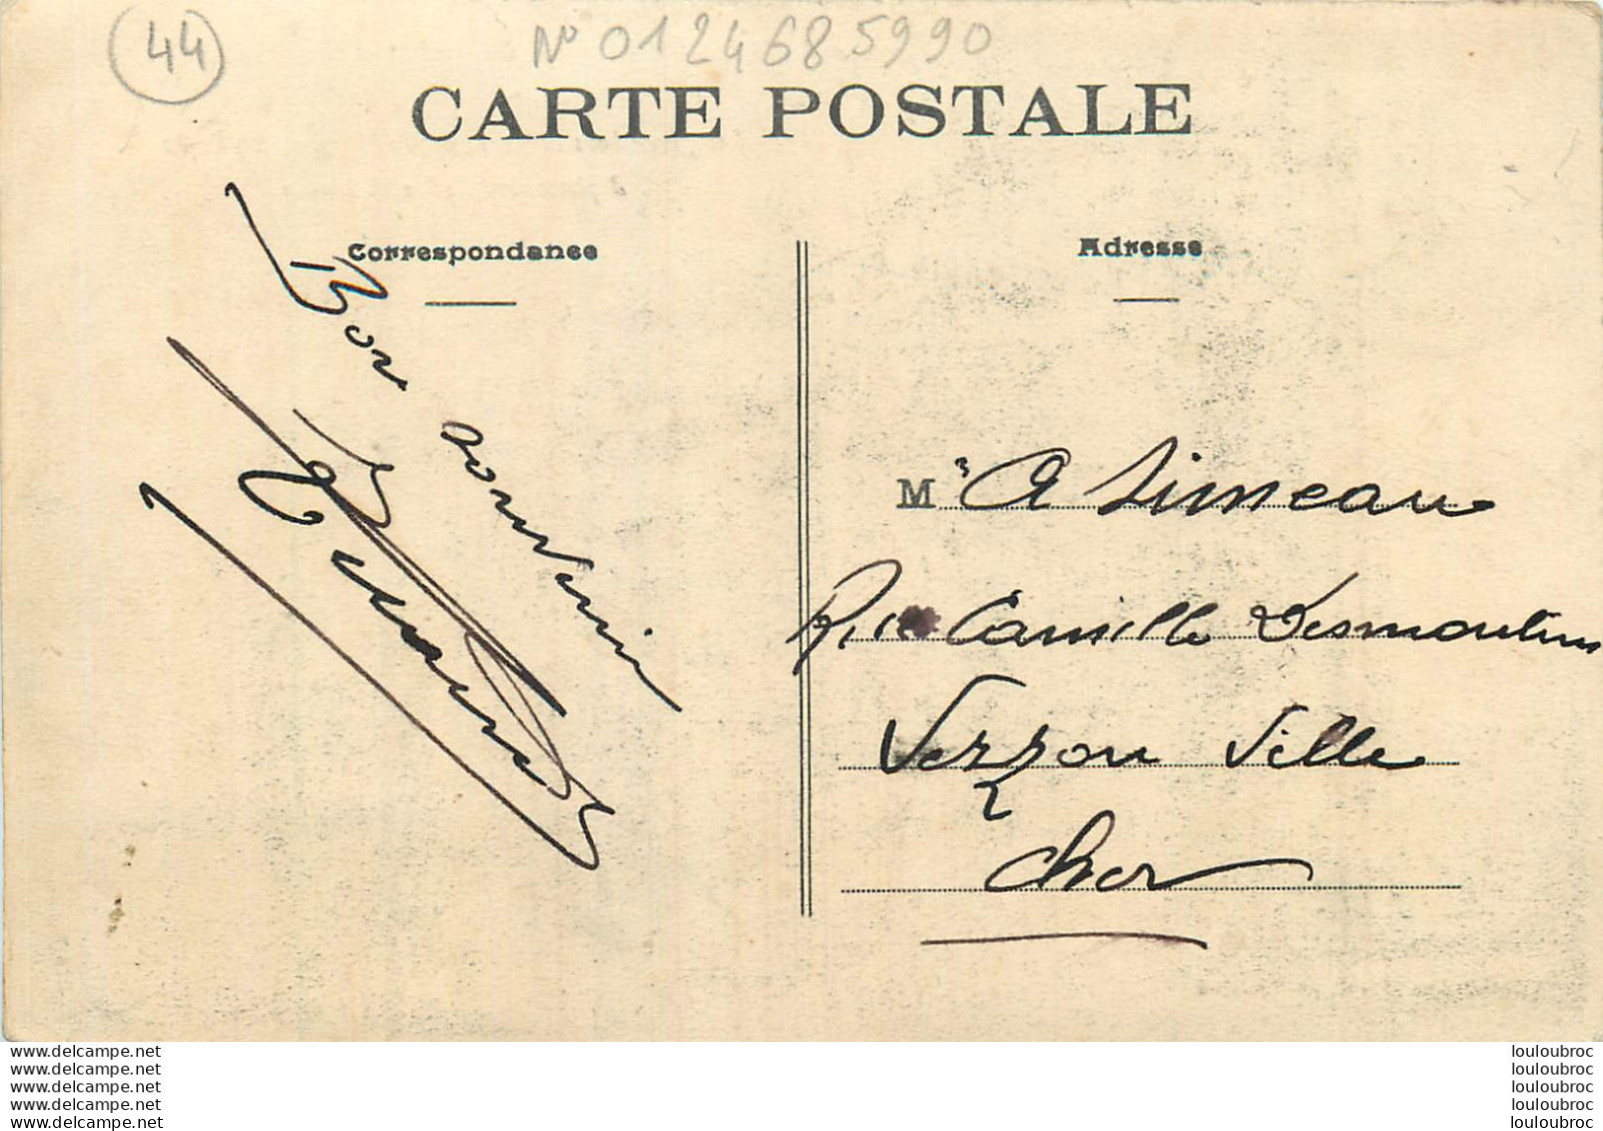 44
N° 0124685990
CARTE POSTALE
Correspondance
Adresse
Bon souvenir
M rs A Simeau
Rue Camille Desmoulins
Verzon Ville
Cher
www.delcampe.net
www.delcampe.net
www.delcampe.net
www.delcampe.net
www.delcampe.net
louloubroc
louloubroc
louloubroc
louloubroc
louloubroc